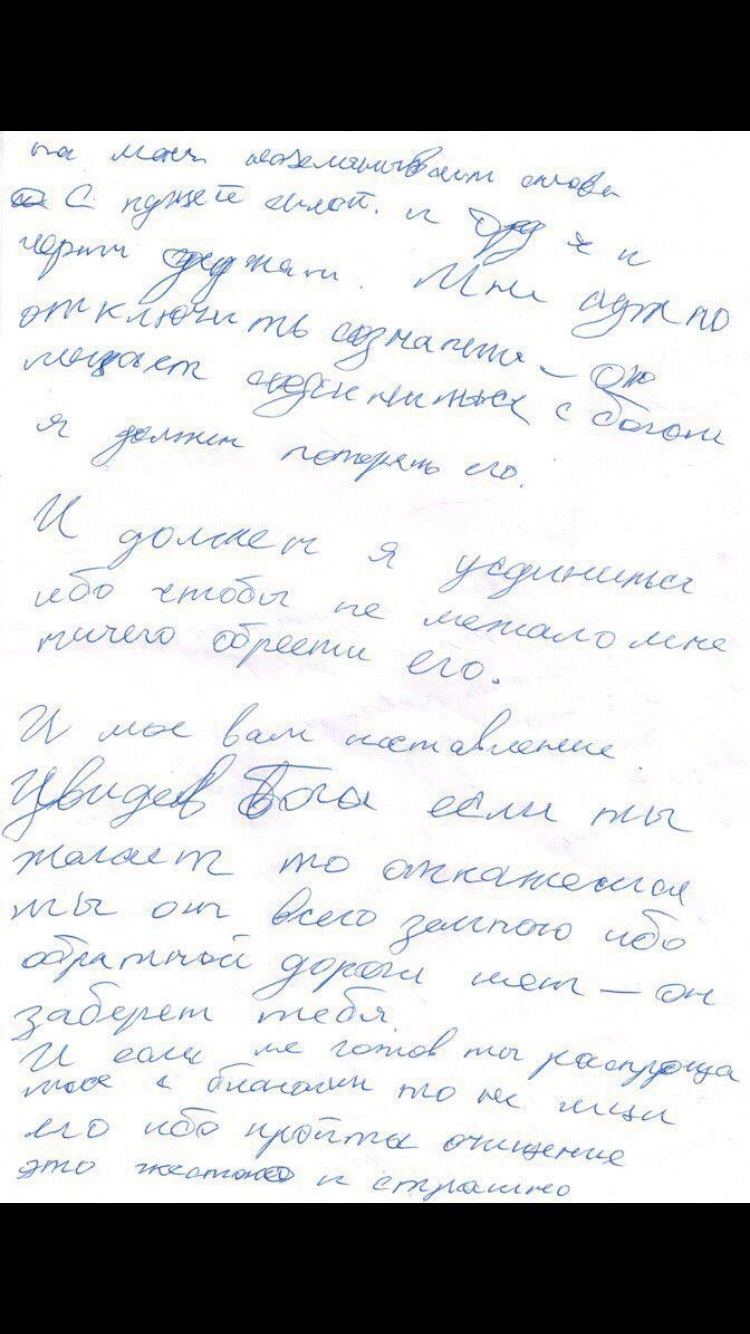 на меня снова
С силой. и я и
черти держат. Мне нужно
отключить сознание – оно
мешает с богом
я должен потерять его.
И должен я уединиться
ибо чтобы не мешало мне
ничего обрести его.
И мое вам наставление.
Увидев Бога если ты
желаешь то откажешься
ты от всего земного ибо
обратной дороги нет – он
заберет тебя.
И если не готов ты распроща
ться с благами то не ищи
его ибо пройти очищение
это жестоко и страшно